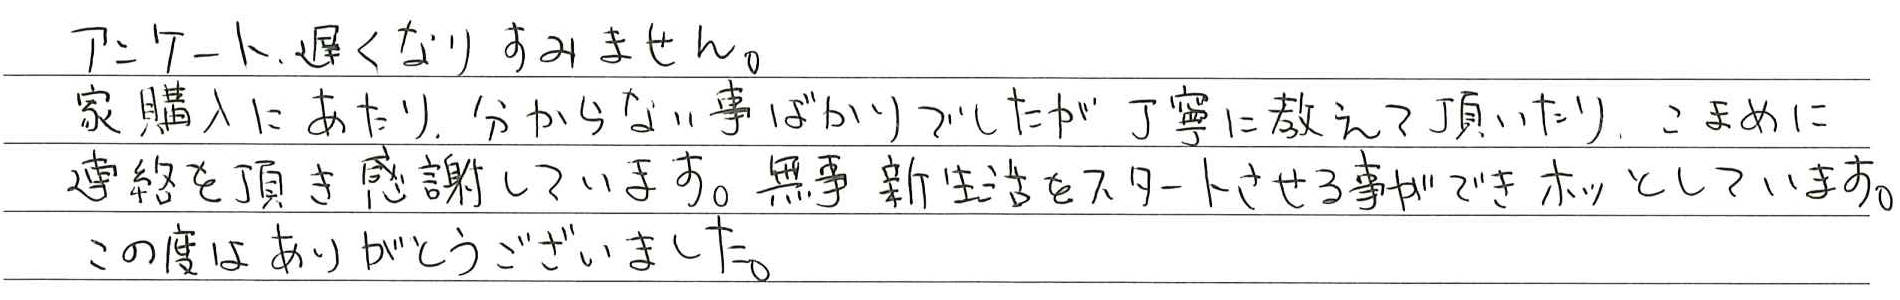 アンケート、遅くなりすみません。
家購入にあたり、分からない事ばかりでしたが丁寧に教えて頂いたり、こまめに
連絡を頂き感謝しています。無事新生活をスタートさせる事ができホッとしています。
この度はありがとうございました。